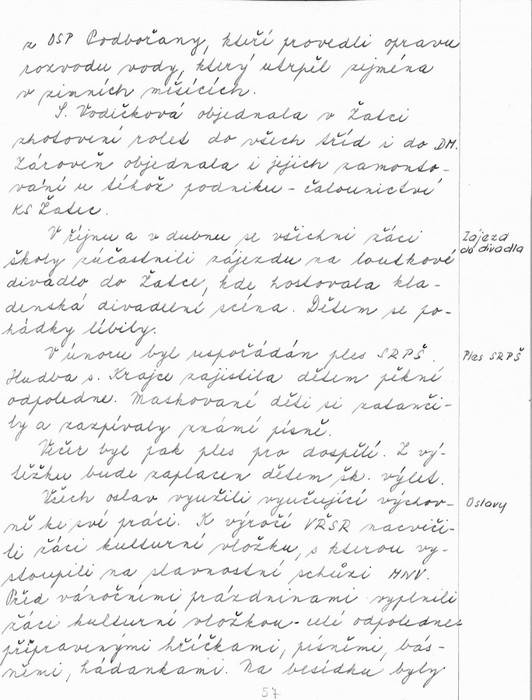 z OSP Podbořany, kteří provedli opravu
rozvodu vody, který utrpěl zejména
v zimních měsících.
S. Vodičková objednala v Žatci
zhotovení rolet do všech tříd i do DM.
Zároveň objednala i jejich zamonto-
vání u téhož podniku - čalounictví
KS Žatec.
V říjnu a v dubnu se všichni žáci
Zájezd
do divadla
školy zúčastnili zájezdu na loutkové
divadlo do Žatce, kde hostovala kla-
denská divadelní scéna. Dětem se po-
hádky líbily.
V únoru byl uspořádán ples SRPŠ.
Ples SRPŠ
Hudba s. Krajce zajistila dětem pěkné
odpoledne. Maskované děti si zatanči-
ly a zazpívaly známé písně.
Večer byl pak ples pro dospělé. Z vý-
těžku bude zaplacen dětem šk. výlet.
Všech oslav využili vyučující výchov-
Oslavy
ně ke své práci. K výročí VŘSR nacviči-
li žáci kulturní vložku, s kterou vy-
stoupili na slavnostní schůzi MNV.
Před vánočními prázdninami vyplnili
žáci kulturní vložkou celé odpoledne
připravenými hříčkami, písněmi, bás-
němi, hádankami. Na besídku byly
57